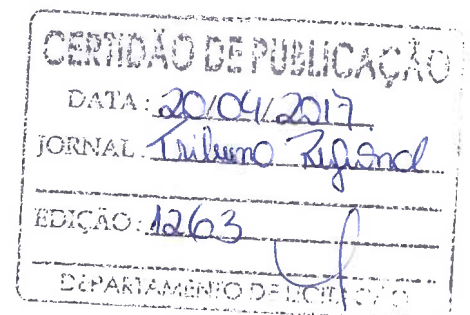 CERTIDÃO DE PUBLICAÇÃO
DATA: 20/04/2017
JORNAL: Tribuna Regional
EDIÇÃO: 1263
DEPARTAMENTO DE LICITAÇÃO